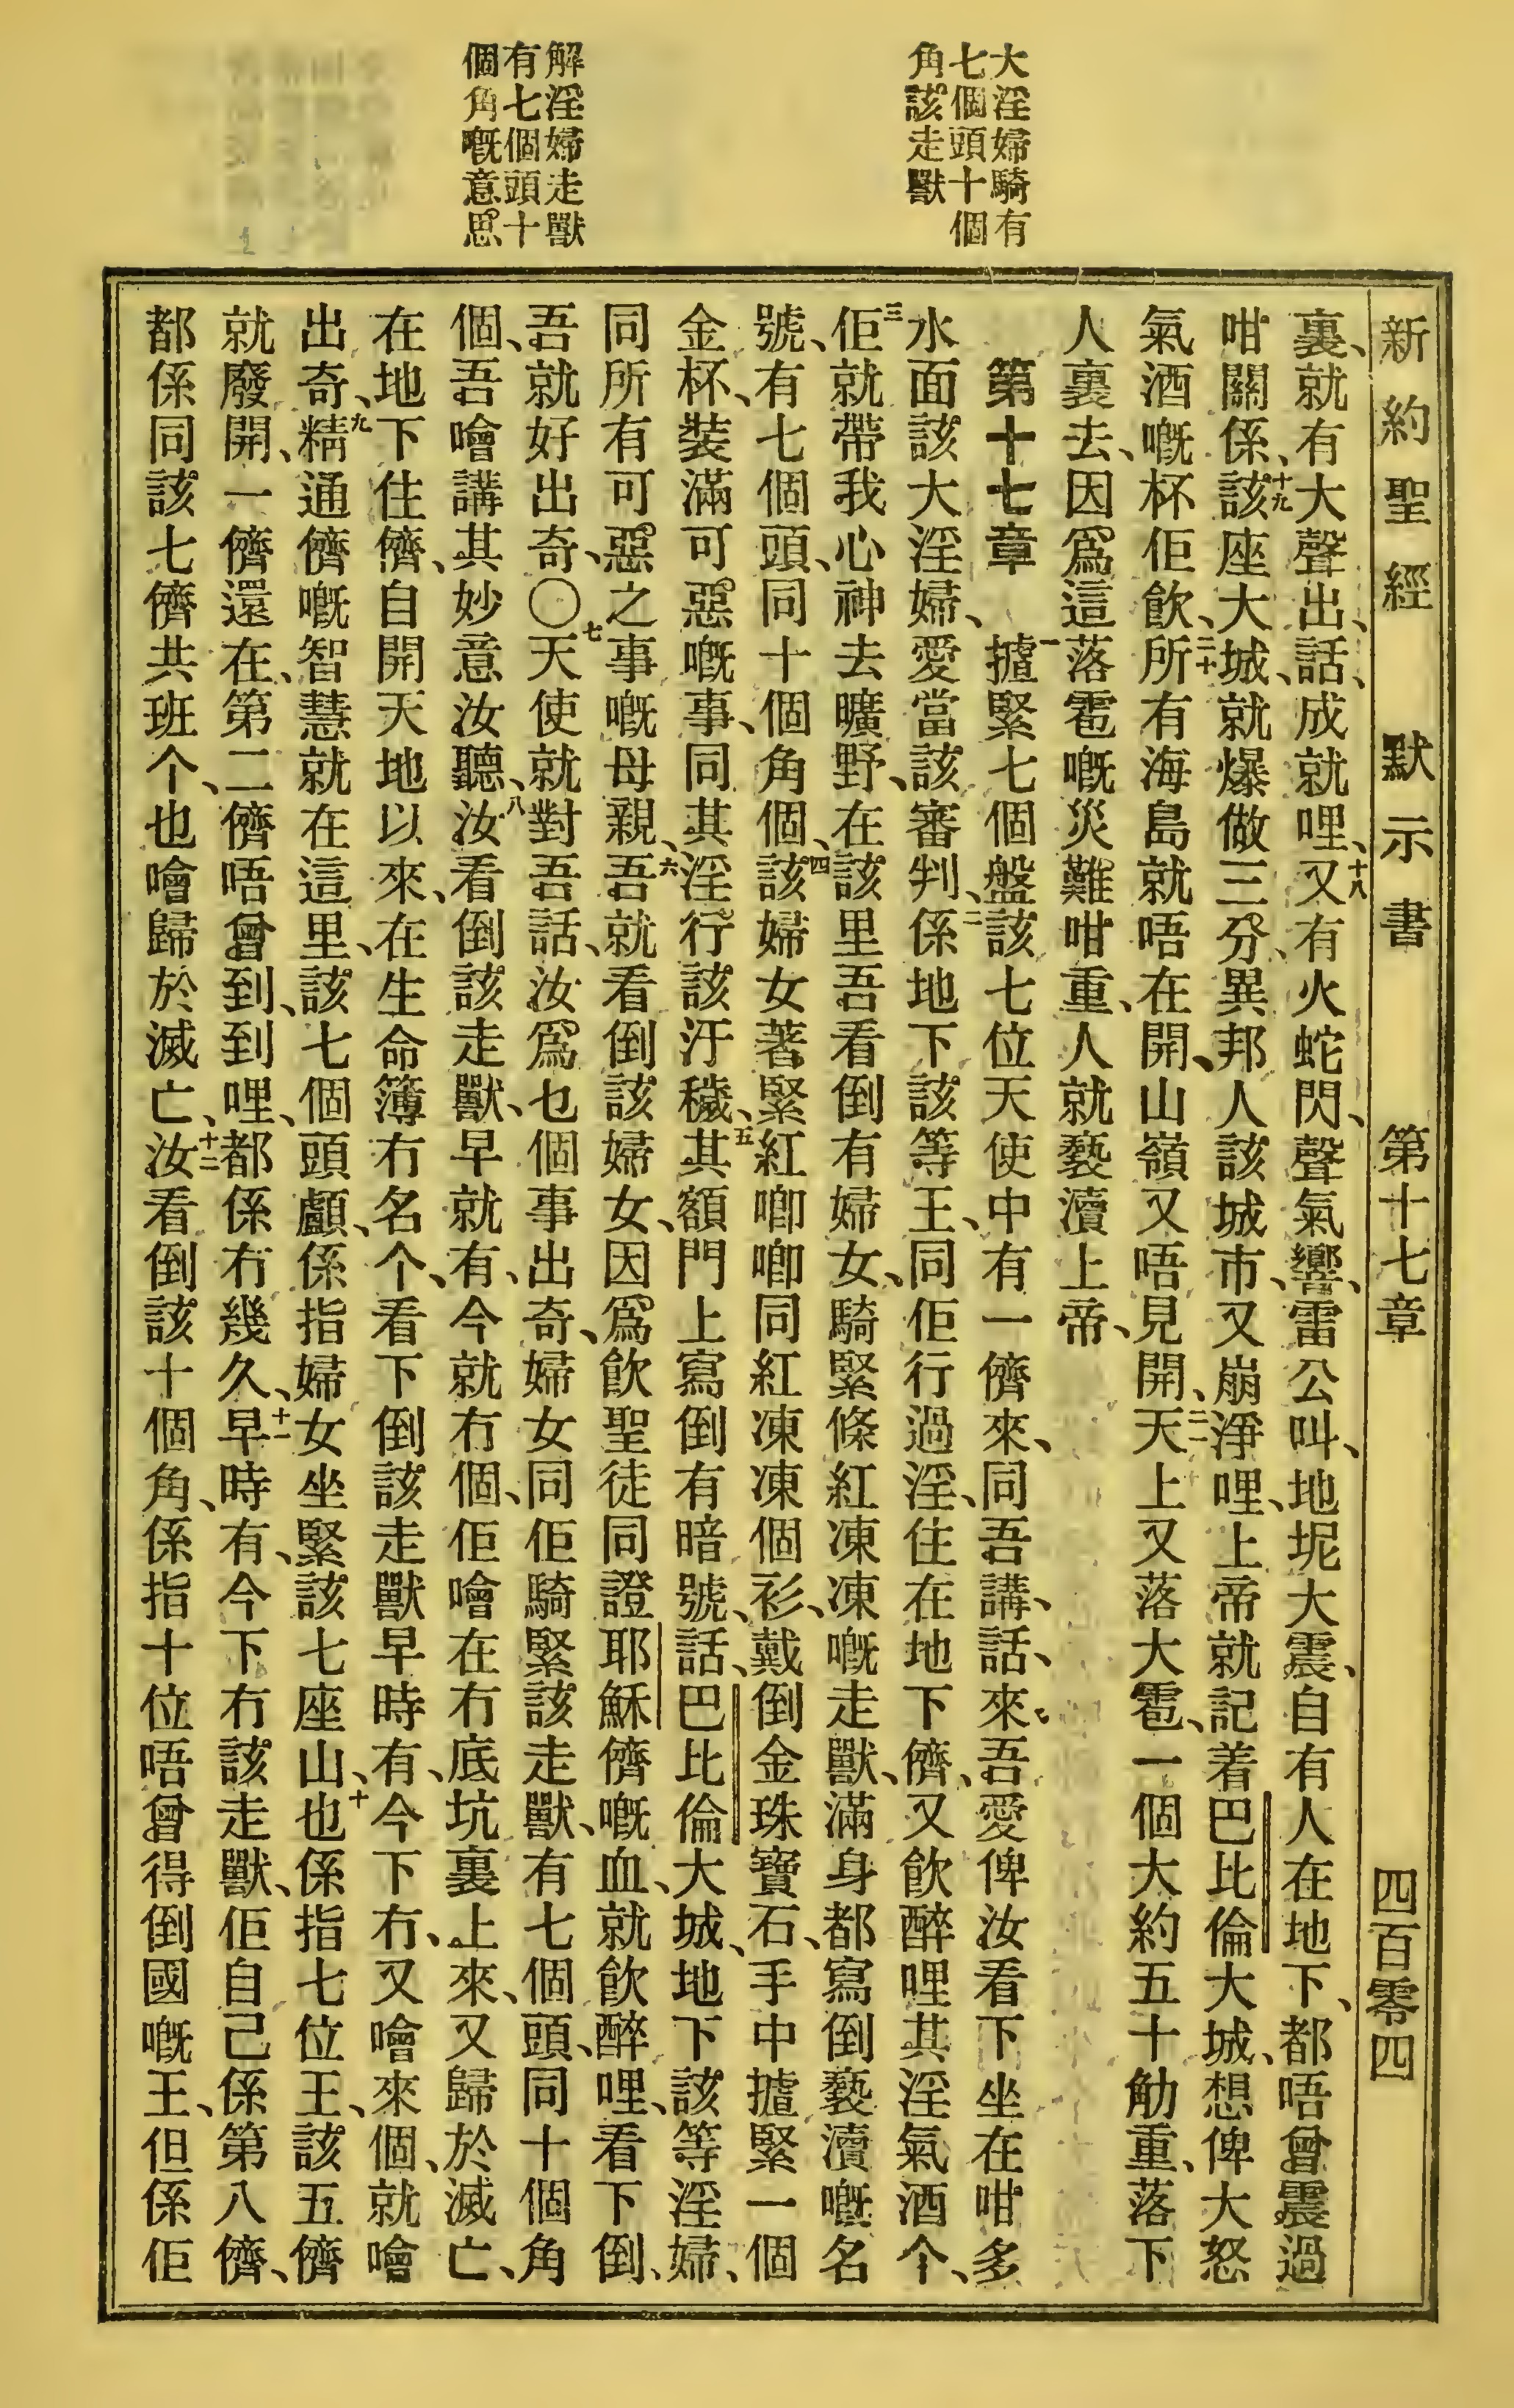 新約聖經 默示書 第十七章 四百零四
大淫婦騎有
七個頭十個
角該走獸
解淫婦走獸
有七個頭十
個角嘅意思
裏、就有大聲出、話、成就哩、十八又有火蛇閃、聲氣響、雷公叫、地坭大震、自有人在地下、都唔曾震過
咁關係、十九該座大城、就爆做三分、異邦人該城市、又崩淨哩、上帝就記着巴比倫大城、想俾大怒
氣酒嘅杯佢飲、二十所有海島就唔在開、山嶺又唔見開、二一天上又落大雹、一個大約五十觔重、落下
人裏去、因爲這落雹嘅災難咁重、人就褻瀆上帝、
第十七章 一㨿緊七個盤該七位天使中有一儕來、同吾講、話、來、吾愛俾汝看下坐在咁多
水面該大淫婦、愛當該審判、二係地下該等王、同佢行過淫、住在地下儕、又飲醉哩其淫氣酒个、
三佢就帶我心神去曠野、在該里吾看倒有婦女、騎緊條紅凍凍嘅走獸、滿身都寫倒褻瀆嘅名
號、有七個頭、同十個角個、四該婦女著緊紅啣啣同紅凍凍個衫、戴倒金珠寶石、手中㨿緊一個
金杯、裝滿可惡嘅事、同其淫行該汙穢、五其額門上寫倒有暗號、話、巴比倫大城、地下該等淫婦、
同所有可惡之事嘅母親、六吾就看倒該婦女、因爲飲聖徒同證耶穌儕嘅血、就飲醉哩、看下倒、
吾就好出奇、〇七天使就對吾話、汝爲乜個事出奇、婦女同佢騎緊該走獸、有七個頭、同十個角
個、吾噲講其妙意汝聽、八汝看倒該走獸、早就有、今就冇個、佢噲在冇底坑裏上來、又歸於滅亡、
在地下住儕、自開天地以來、在生命簿冇名个、看下倒該走獸早時有、今下冇、又噲來個、就噲
出奇、九精通儕嘅智慧就在這里、該七個頭顱、係指婦女坐緊該七座山、十也係指七位王、該五儕
就廢開、一儕還在、第二儕唔曾到、到哩、都係冇幾久、十一早時有、今下冇該走獸、佢自己係第八儕、
都係同該七儕共班个、也噲歸於滅亡、十二汝看倒該十個角、係指十位唔曾得倒國嘅王、但係佢